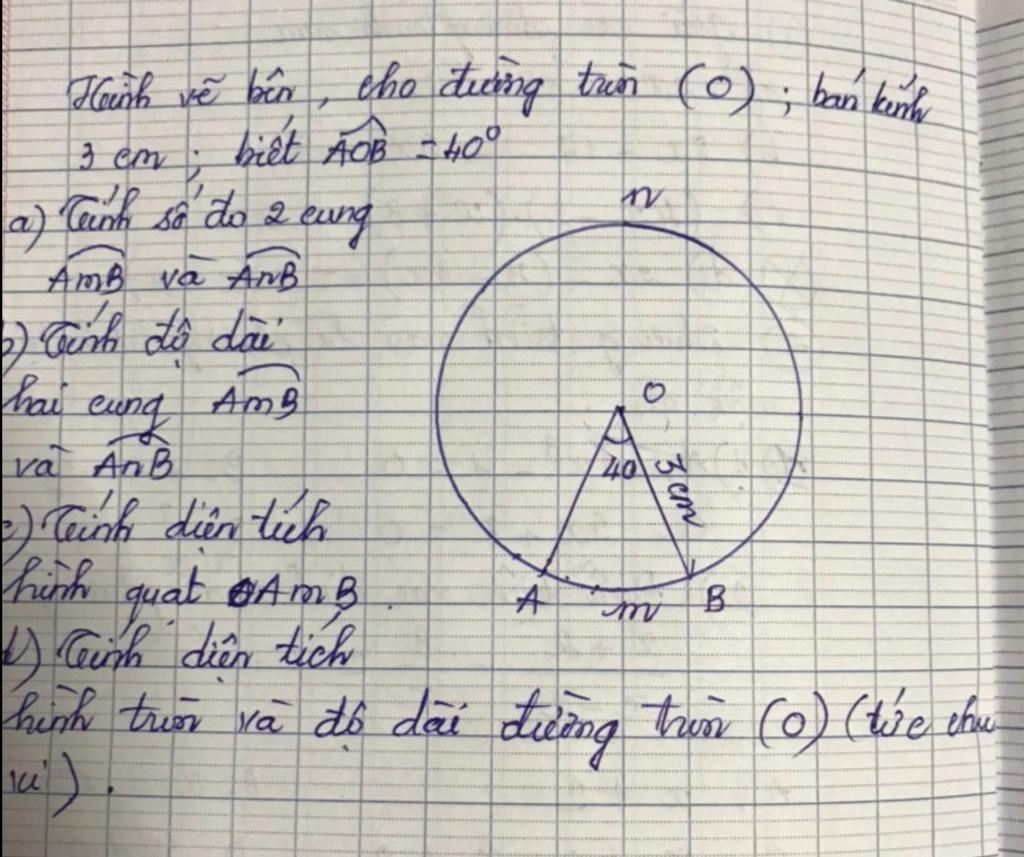 Hình vẽ bên, cho đường tròn (O); bán kính
3 cm; biết AOB = 40°
a) Tính số đo 2 cung
AmB và AnB
b) Tính độ dài
hai cung AmB
và AnB
c) Tính diện tích
hình quạt OAmB.
d) Tính diện tích
hình tròn và độ dài đường tròn (O) (tức chu
vi).
n
O
40
3 cm
A
m
B